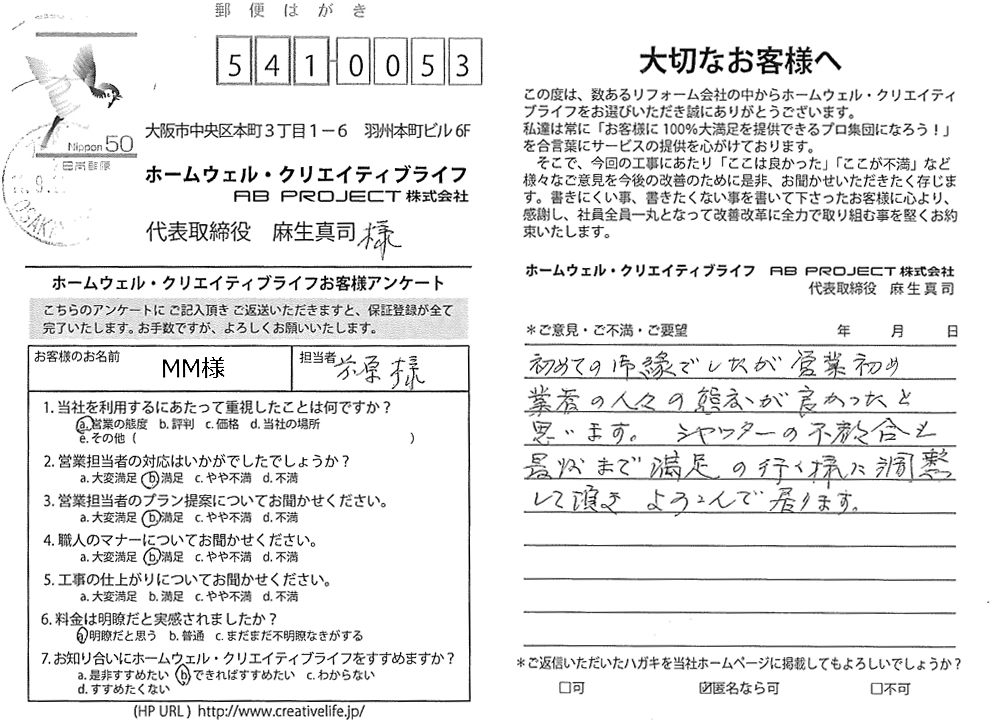 郵便はがき
541-0053
Nippon 50
日本郵便
大阪市中央区本町3丁目1－6　羽州本町ビル6F
ホームウェル・クリエイティブライフ
AB PROJECT 株式会社
代表取締役　麻生真司 様
ホームウェル・クリエイティブライフお客様アンケート
こちらのアンケートに ご記入頂き ご返送いただきますと、保証登録が全て
完了いたします。お手数ですが、よろしくお願いいたします。
お客様のお名前　MM様　担当者　芥原 様
1. 当社を利用するにあたって重視したことは何ですか？
a. 営業の態度　b. 評判　c. 価格　d. 当社の場所
e. その他（　　　　　　　　　　）
2. 営業担当者の対応はいかがでしたでしょうか？
a. 大変満足　b. 満足　c. やや不満　d. 不満
3. 営業担当者のプラン提案についてお聞かせください。
a. 大変満足　b. 満足　c. やや不満　d. 不満
4. 職人のマナーについてお聞かせください。
a. 大変満足　b. 満足　c. やや不満　d. 不満
5. 工事の仕上がりについてお聞かせください。
a. 大変満足　b. 満足　c. やや不満　d. 不満
6. 料金は明瞭だと実感されましたか？
a. 明瞭だと思う　b. 普通　c. まだまだ不明瞭なきがする
7. お知り合いにホームウェル・クリエイティブライフをすすめますか？
a. 是非すすめたい　b. できればすすめたい　c. わからない
d. すすめたくない
(HP URL )  http://www.creativelife.jp/
大切なお客様へ
この度は、数あるリフォーム会社の中からホームウェル・クリエイティ
ブライフをお選びいただき誠にありがとうございます。
私達は常に「お客様に 100%大満足を提供できるプロ集団になろう！」
を合言葉にサービスの提供を心がけております。
そこで、今回の工事にあたり「ここは良かった」「ここが不満」など
様々なご意見を今後の改善のために是非、お聞かせいただきたく存じま
す。書きにくい事、書きたくない事を書いて下さったお客様に心より、
感謝し、社員全員一丸となって改善改革に全力で取り組む事を堅くお約
束いたします。
ホームウェル・クリエイティブライフ　AB PROJECT 株式会社
代表取締役　麻生真司
＊ご意見・ご不満・ご要望　年　月　日
初めての御縁でしたが営業初め
業者の人々の態度が良かったと
思います。シャッターの不都合も
最後まで満足の行く様に調整
して頂き よろこんで居ります。
＊ご返信いただいたハガキを当社ホームページに掲載してもよろしいでしょうか？
□可　☑匿名なら可　□不可